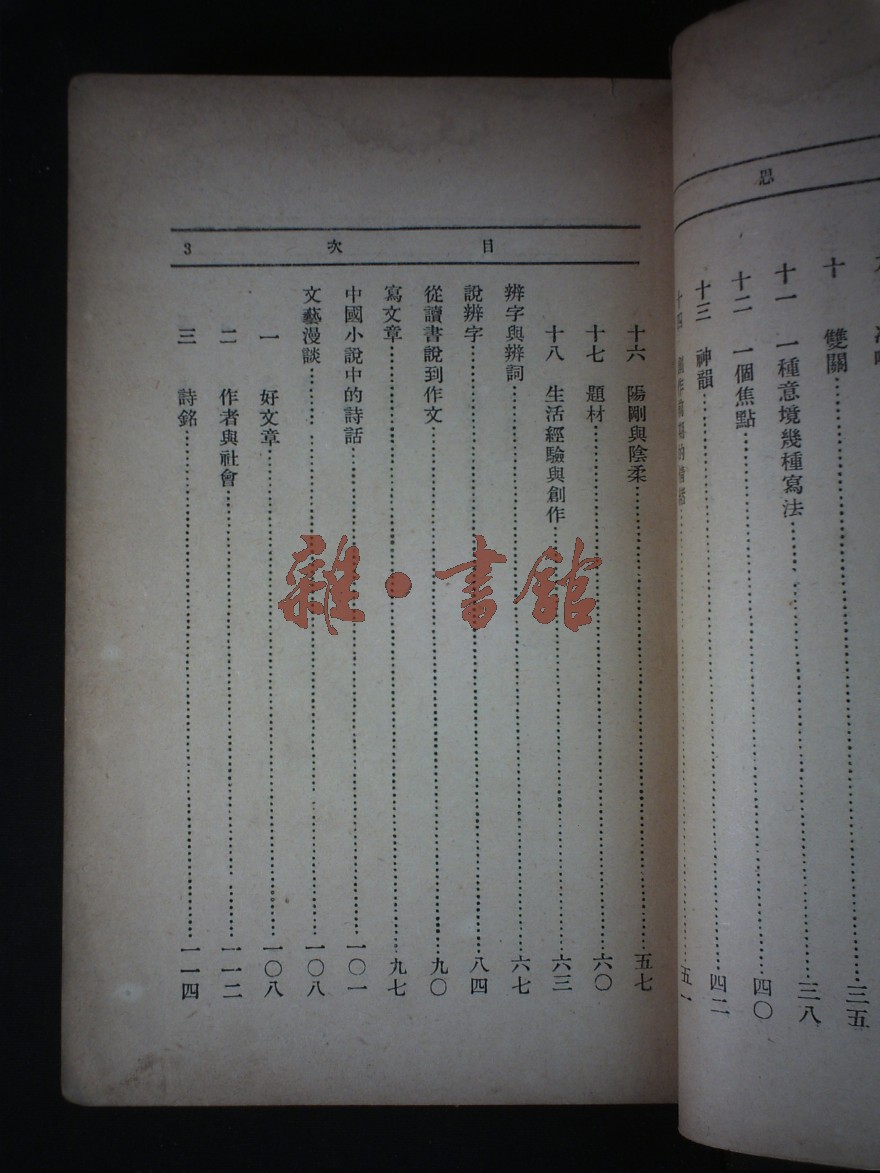 思
十 雙關……三五
十一 一種意境幾種寫法……三八
十二 一個焦點……四〇
十三 神韻……四二
十四……五一
3 次 目
十六 陽剛與陰柔……五七
十七 題材……六〇
十八 生活經驗與創作……六三
辨字與辨詞……六七
說辨字……八四
從讀書說到作文……九〇
寫文章……九七
中國小說中的詩話……一〇一
文藝漫談……一〇八
一 好文章……一〇八
二 作者與社會……一一二
三 詩銘……一一四
雜·書館